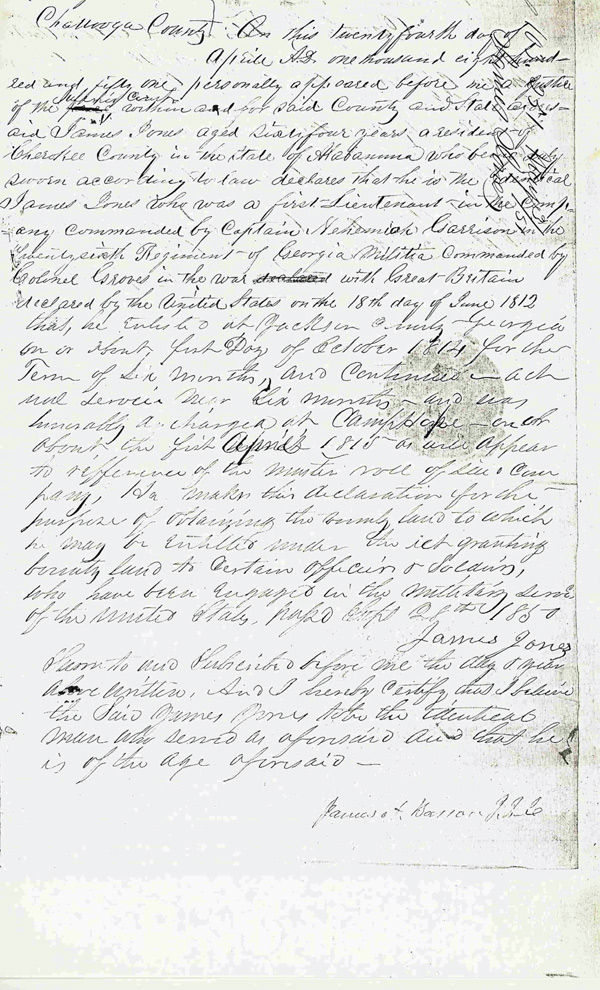 Chattooga County. On this twenty fourth day of
Aprile AD. one thousand eight hund-
red and fifty one personally appeared before me a Justice
of the within and for said County and State
aid James Jones aged sixtifour years a resident of
Cherokee County in the state of Alabamma who being duly
sworn according to law declares that he is the identical
James Jones who was a first Lieutenant in the Comp-
any commanded by Captain Nehemiah Garrison in the
Twentysixth Regiment of Georgia Militia Commanded by
Colonel Groves in the war declared with Great Britain
declared by the United States on the 18th day of June 1812
that, he Enlisted at Jackson County Georgia
on or about first Day of October 1814 for the
Term of Six months, and Continued in act
ual service near Six months and was
honorably discharged at Camp Hope on or
about the first Aprile 1815 as will appear
to refference of the muster roll of said Com
pany, He makes this declaration for the
purpose of obtaining the bounty land to which
he may be Entitled under the act granting
bounty land to Certain officers & Soldiers,
who have been Engaged in the military servic
of the United States, passd Sept 28th 1850
James Jones
Sworn to and Subscribed before me the day & year
above written, And I hereby Certify that I believe
the Said James Jones to be the identical
man who served as aforesaid and that he
is of the age aforesaid —
James